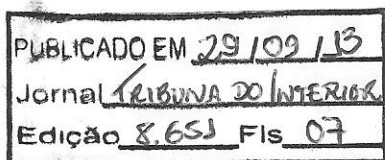 PUBLICADO EM 29/09/13
Jornal TRIBUNA DO INTERIOR
Edição 8.651 Fls 07